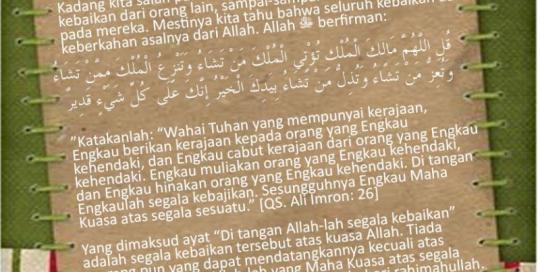 Kadang kita salah
kebaikan dari orang lain, sampai-sampai
pada mereka. Mestinya kita tahu bahwa seluruh kebaikan da
keberkahan asalnya dari Allah. Allah ﷻ berfirman:
قُلِ اللَّهُمَّ مَالِكَ الْمُلْكِ تُؤْتِي الْمُلْكَ مَنْ تَشَاءُ وَتَنْزِعُ الْمُلْكَ مِمَّنْ تَشَاءُ
وَتُعِزُّ مَنْ تَشَاءُ وَتُذِلُّ مَنْ تَشَاءُ بِيَدِكَ الْخَيْرُ إِنَّكَ عَلَى كُلِّ شَيْءٍ قَدِيرٌ
"Katakanlah: "Wahai Tuhan yang mempunyai kerajaan,
Engkau berikan kerajaan kepada orang yang Engkau
kehendaki, dan Engkau cabut kerajaan dari orang yang Engkau
kehendaki. Engkau muliakan orang yang Engkau kehendaki,
dan Engkau hinakan orang yang Engkau kehendaki. Di tangan
Engkaulah segala kebajikan. Sesungguhnya Engkau Maha
Kuasa atas segala sesuatu." [QS. Ali Imron: 26]
Yang dimaksud ayat "Di tangan Allah-lah segala kebaikan"
adalah segala kebaikan tersebut atas kuasa Allah. Tiada
pun yang dapat mendatangkannya kecuali atas
-lah yang Maha Kuasa atas segala
rahimahullah.